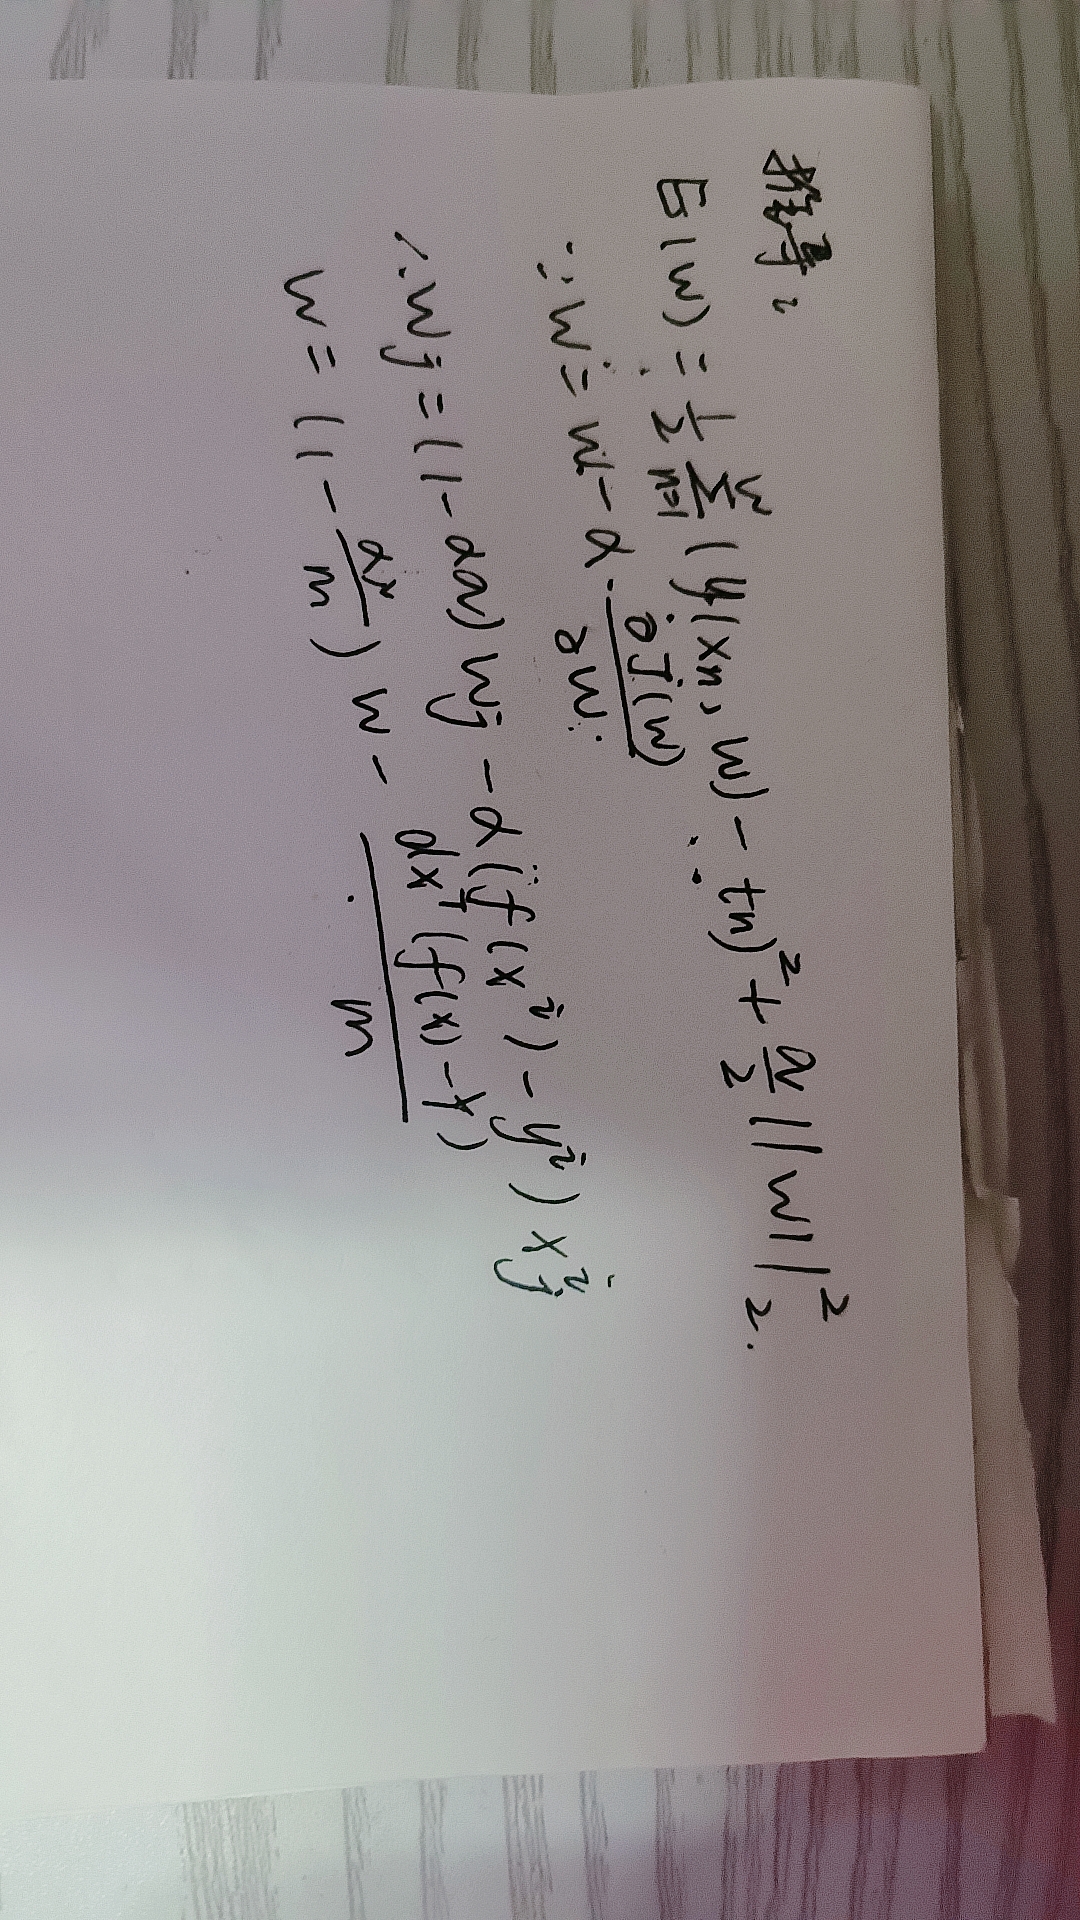 推导:
E(w) = 1/2 Σ n=1 (y(xn, w) - tn)² + λ/2 ||w||²₂.
∵ w = w - α · ∂J(w)/∂w
∴ wj = (1 - αλ) wj - α (f(xⁱ) - yⁱ) xⁱj
w = (1 - αλ/m) w - αxᵀ(f(x) - Y)/m